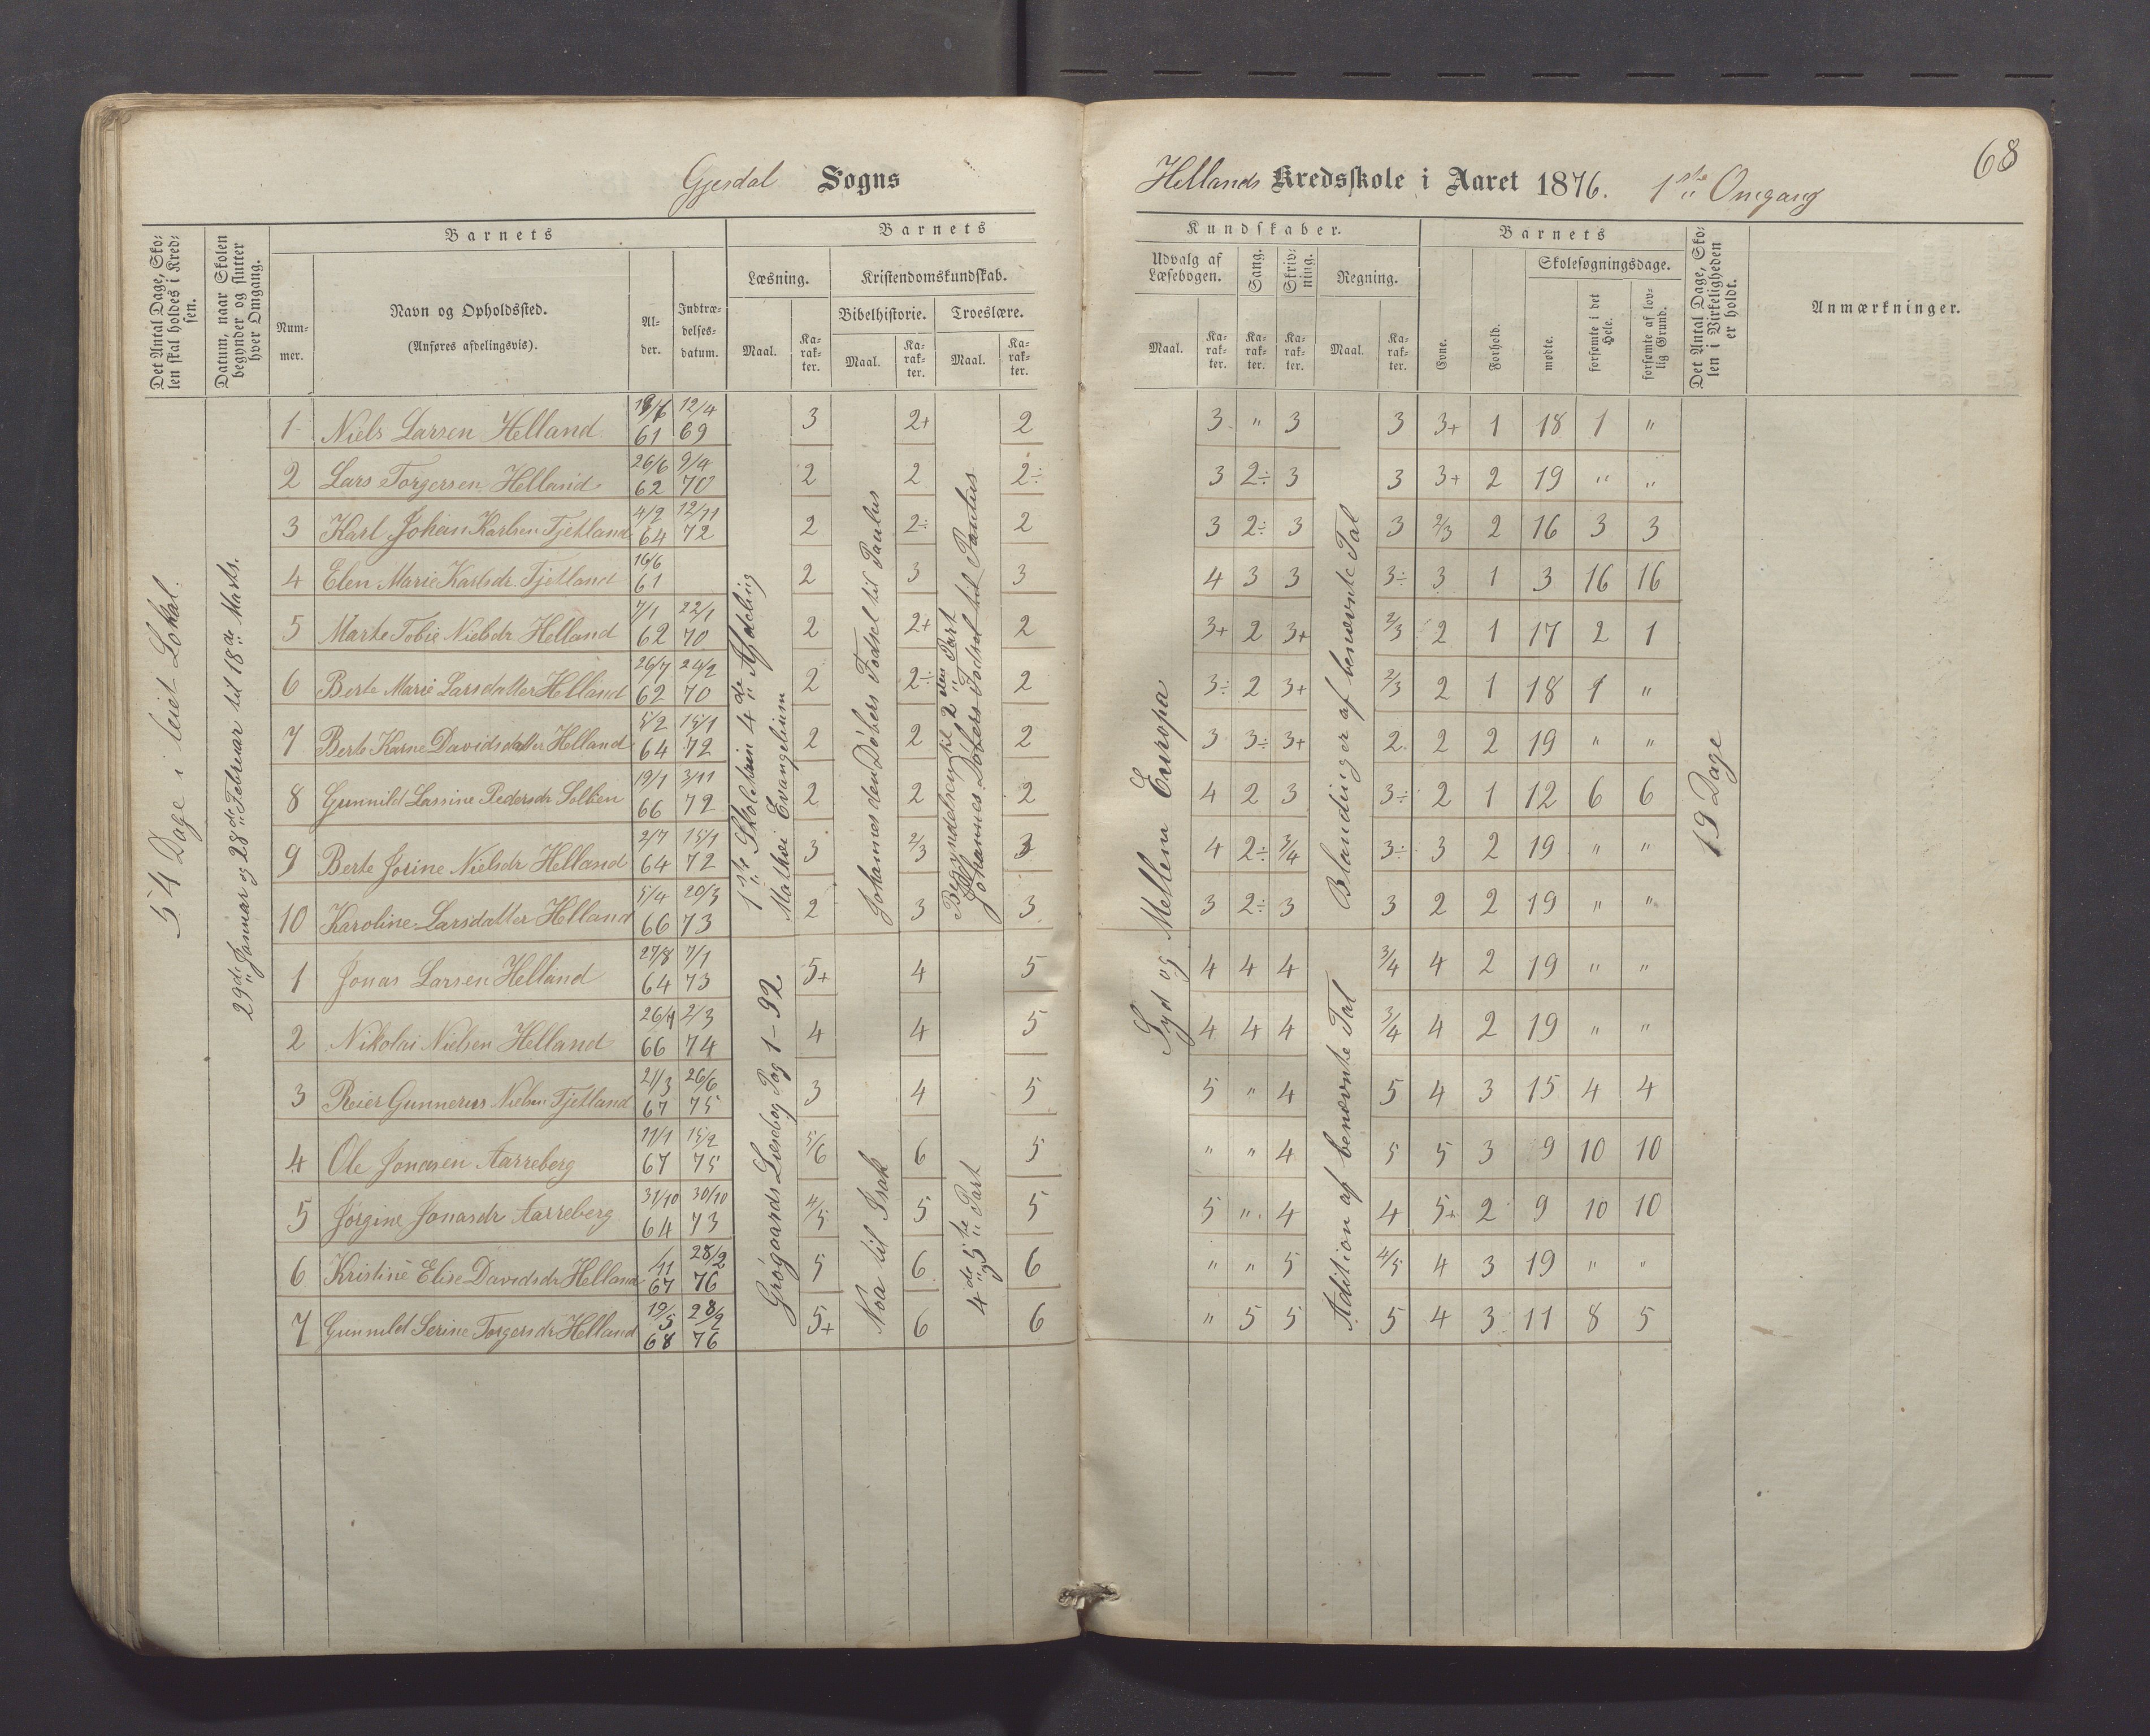 68
Gjesdal Sogns Hellands Kredsskole i Aaret 1876. 1ste Omgang
Det Antal Dage, Skolen skal holdes i Kredsen.
Datum, naar Skolen begynder og slutter hver Omgang.
Barnets
Nummer.
Navn og Opholdssted.
(Anføres afdelingsvis).
Alder.
Indtrædelsesdatum.
Barnets Kundskaber.
Læsning.
Maal. Karakter.
Kristendomskundskab.
Bibelhistorie. Troeslære.
Maal. Karakter. Maal. Karakter.
Udvalg af Læsebogen.
Maal. Karakter.
Sang. Karakter.
Skrivning. Karakter.
Regning.
Maal. Karakter.
Barnets
Evne. Forhold.
Skolesøgningsdage.
mødte. forsømte i det Hele. forsømte af lovlig Grund.
Det Antal Dage, Skolen i Virkeligheden er holdt.
Anmærkninger.
54 Dage i leiet Lokal.
29de Januar og 28de Februar til 18de Marts.
1ste Skoletrin 4de Afdeling
Mathæi Evangelium
Johannes den Døbers Fødsel til Paulus
Begyndelsen til 2den Part
Johannes Døbers Fødsel til Paulus
Syd og Mellem Europa
Blandinger af benævnte Tal
19 Dage
1 Niels Larsen Helland 19/6 61 12/4 69 3 2+ 2 3 " 3 3 3+ 1 18 1 "
2 Lars Torgersen Helland 26/6 62 9/4 70 2 2 2÷ 3 2÷ 3 3 3+ 2 19 " "
3 Karl Johan Karlsen Tjetland 4/2 64 12/11 72 2 2÷ 2 3 2÷ 3 3 2/3 2 16 3 3
4 Elen Marie Karlsdr. Tjetland 16/6 61 2 3 3 4 3 3 3÷ 3 1 3 16 16
5 Marte Tobie Nielsdr Helland 7/1 62 22/1 70 2 2+ 2 3+ 2 3+ 2/3 2 1 17 2 1
6 Berte Marie Larsdatter Helland 26/7 62 24/2 70 2 2÷ 2 3÷ 2 3+ 2/3 2 1 18 1 "
7 Berte Karne Davidsdatter Helland 5/2 64 15/1 72 2 2 2 3 3÷ 3+ 2 2 2 19 " "
8 Gunnild Lassine Pedersdr 19/1 66 3/11 72 2 2 2 4 2 3 3÷ 2 1 12 6 6
9 Berte Jorine Nielsdr Helland 2/7 64 15/1 72 3 2/3 3 4 2÷ 3/4 3÷ 3 2 19 " "
10 Karoline Larsdatter Helland 5/4 66 20/3 73 2 3 3 3 2÷ 3 3 2 2 19 " "
Grøgaards Læsebog Pag 1-92
Noa til Isak
4de og 5te Part
Adition af benævnte Tal
1 Jonas Larsen Helland 27/8 64 7/1 73 5+ 4 5 4 4 4 3/4 4 2 19 " "
2 Nikolai Nielsen Helland 66 2/3 74 4 4 5 4 4 4 3/4 4 2 19 " "
3 Reier Gunnerus Nielsen Tjetland 21/3 67 26/6 75 3 4 5 5 " 4 5 4 3 15 4 4
4 Ole Jonasen Aarreberg 11/1 67 15/2 75 5/6 6 5 " " 4 5 5 3 9 10 10
5 Jørgine Jonasdr Aarreberg 31/10 64 30/10 73 4/5 5 5 5 " 4 4 5+ 2 9 10 10
6 Kristine Elise Davidsdr Helland 67 28/2 76 5 6 6 " " 5 4/5 4 3 19 " "
7 Gunnild Serine Torgersdr Helland 19/5 68 28/2 76 5+ 6 6 " 5 5 5 4 3 11 8 5